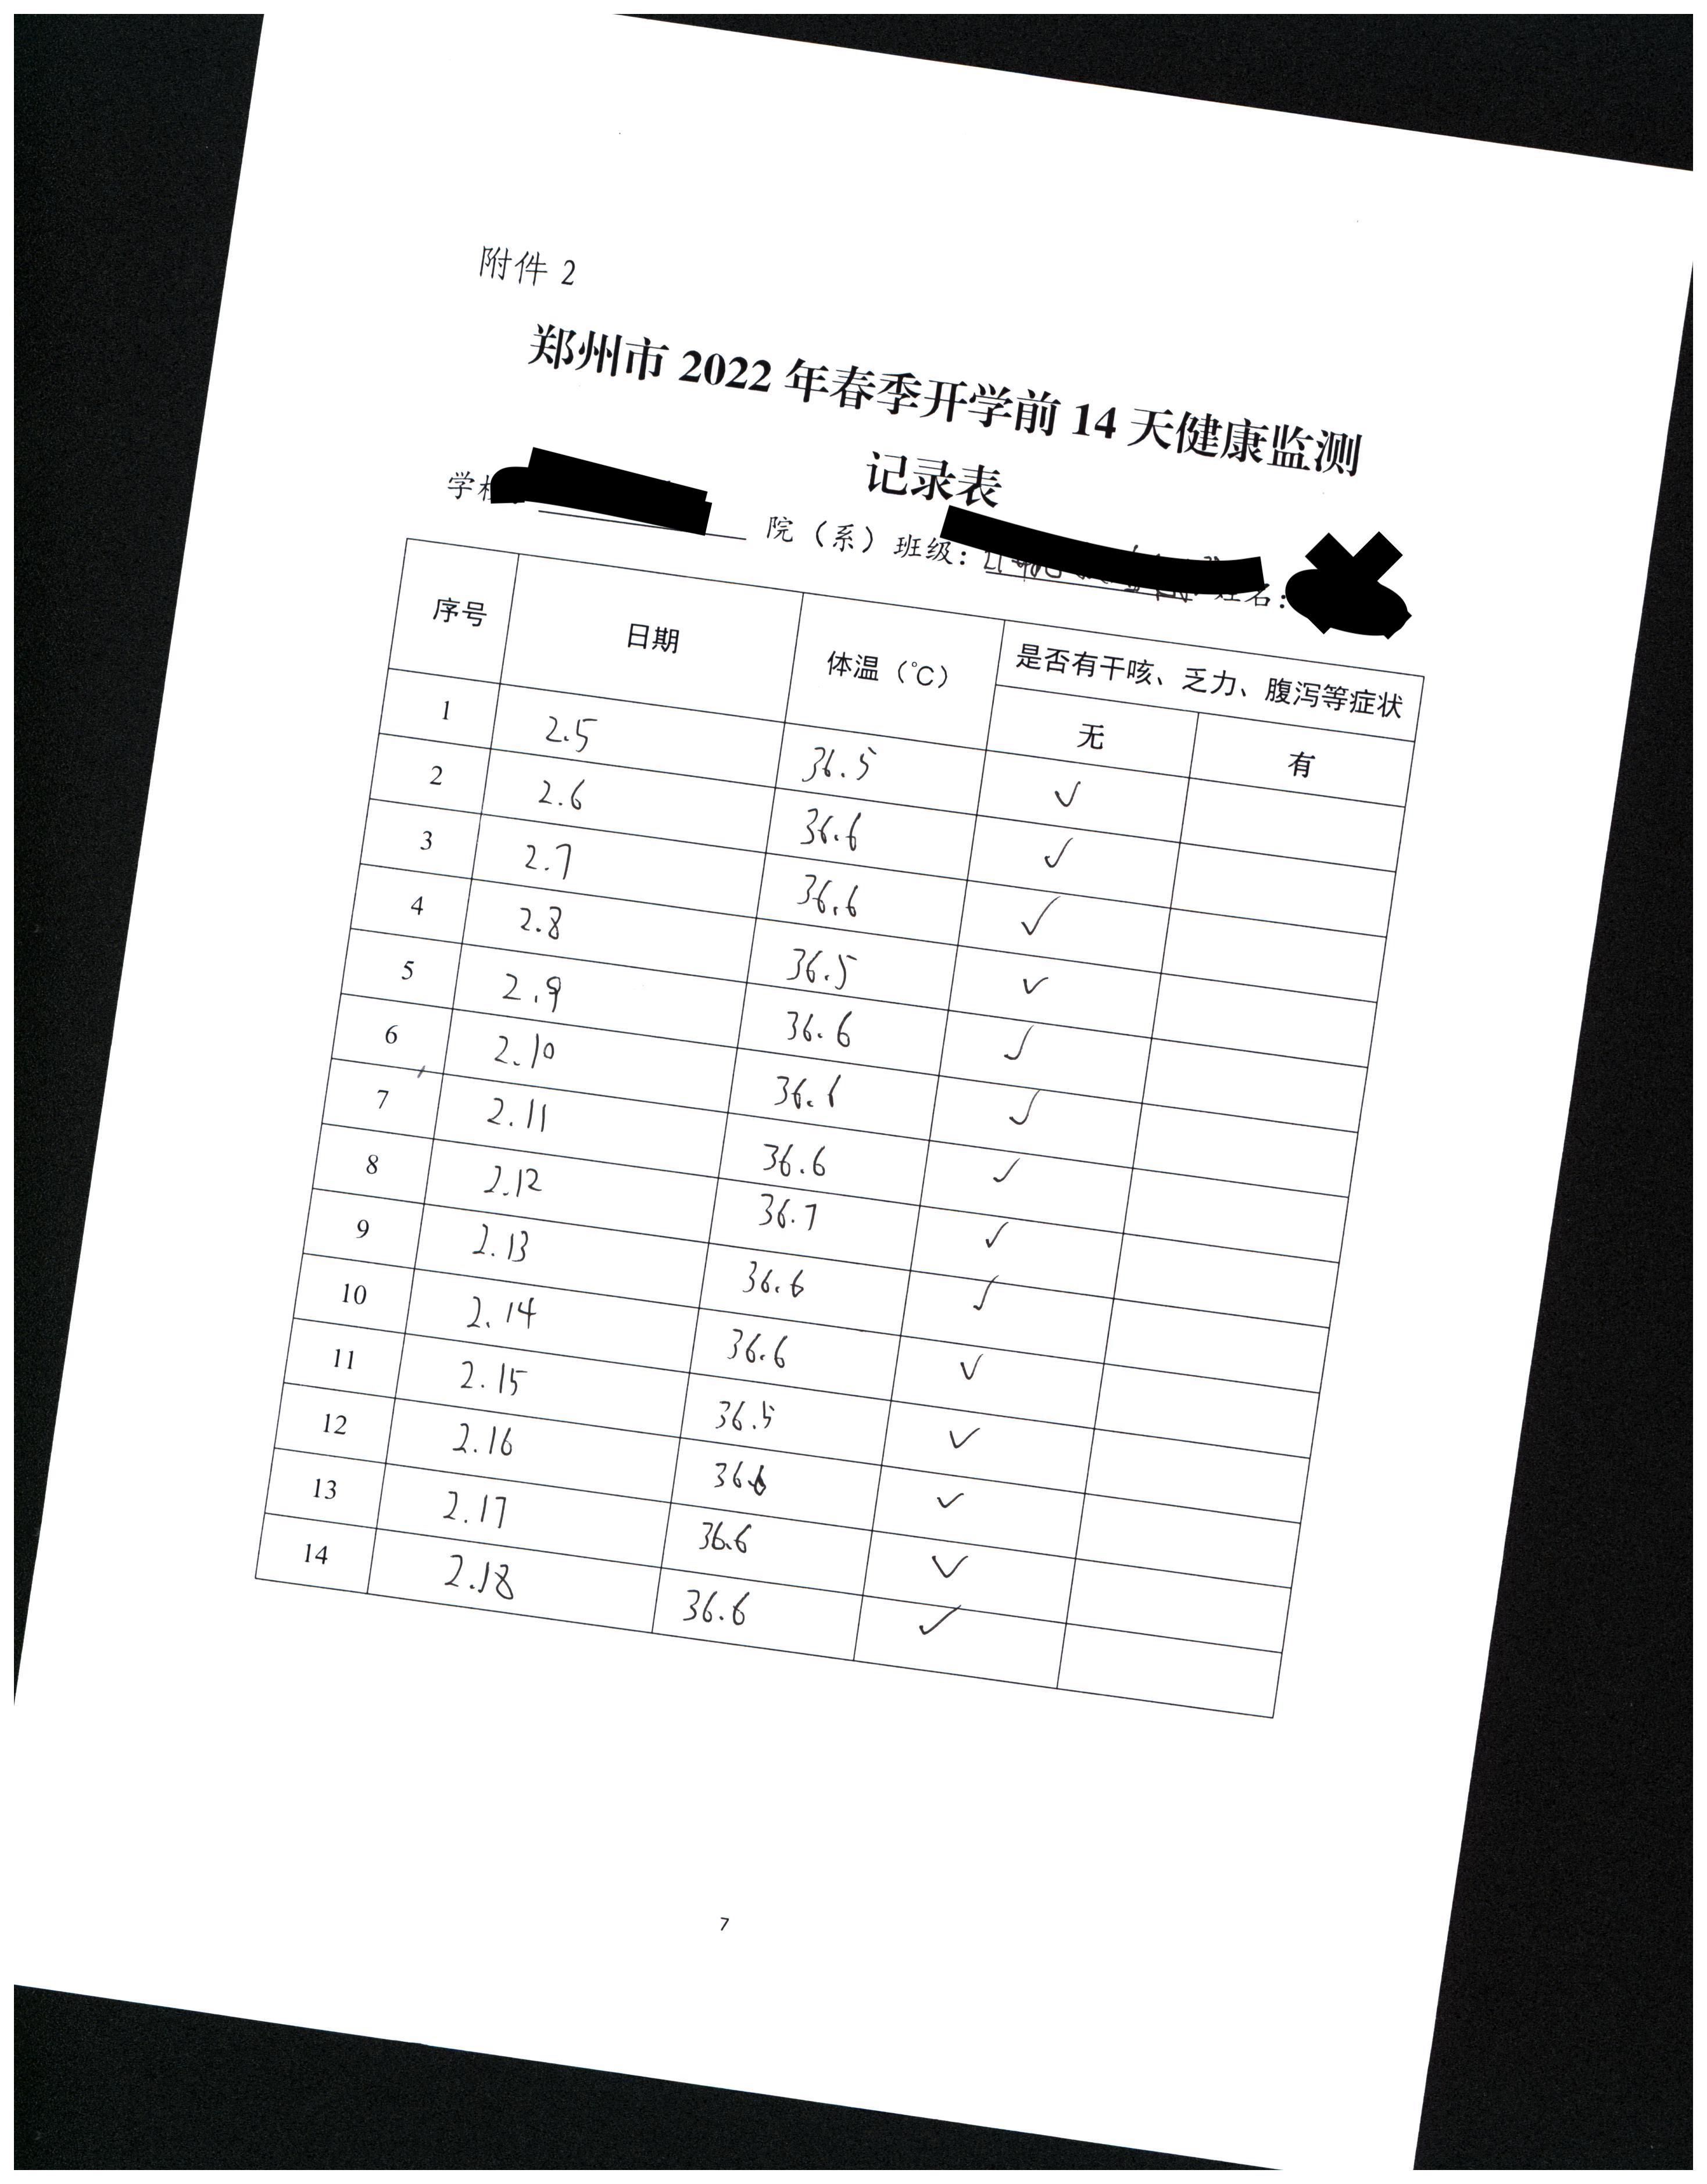 附件 2
郑州市 2022 年春季开学前 14 天健康监测
记录表
学校 院（系）班级： 姓名：
序号 日期 体温（℃） 是否有干咳、乏力、腹泻等症状
无 有
1 2.5 36.5 ✓
2 2.6 36.6 ✓
3 2.7 36.6 ✓
4 2.8 36.5 ✓
5 2.9 36.6 ✓
6 2.10 36.6 ✓
7 2.11 36.6 ✓
8 2.12 36.7 ✓
9 2.13 36.6 ✓
10 2.14 36.6 ✓
11 2.15 36.5 ✓
12 2.16 36.6 ✓
13 2.17 36.6 ✓
14 2.18 36.6 ✓
7